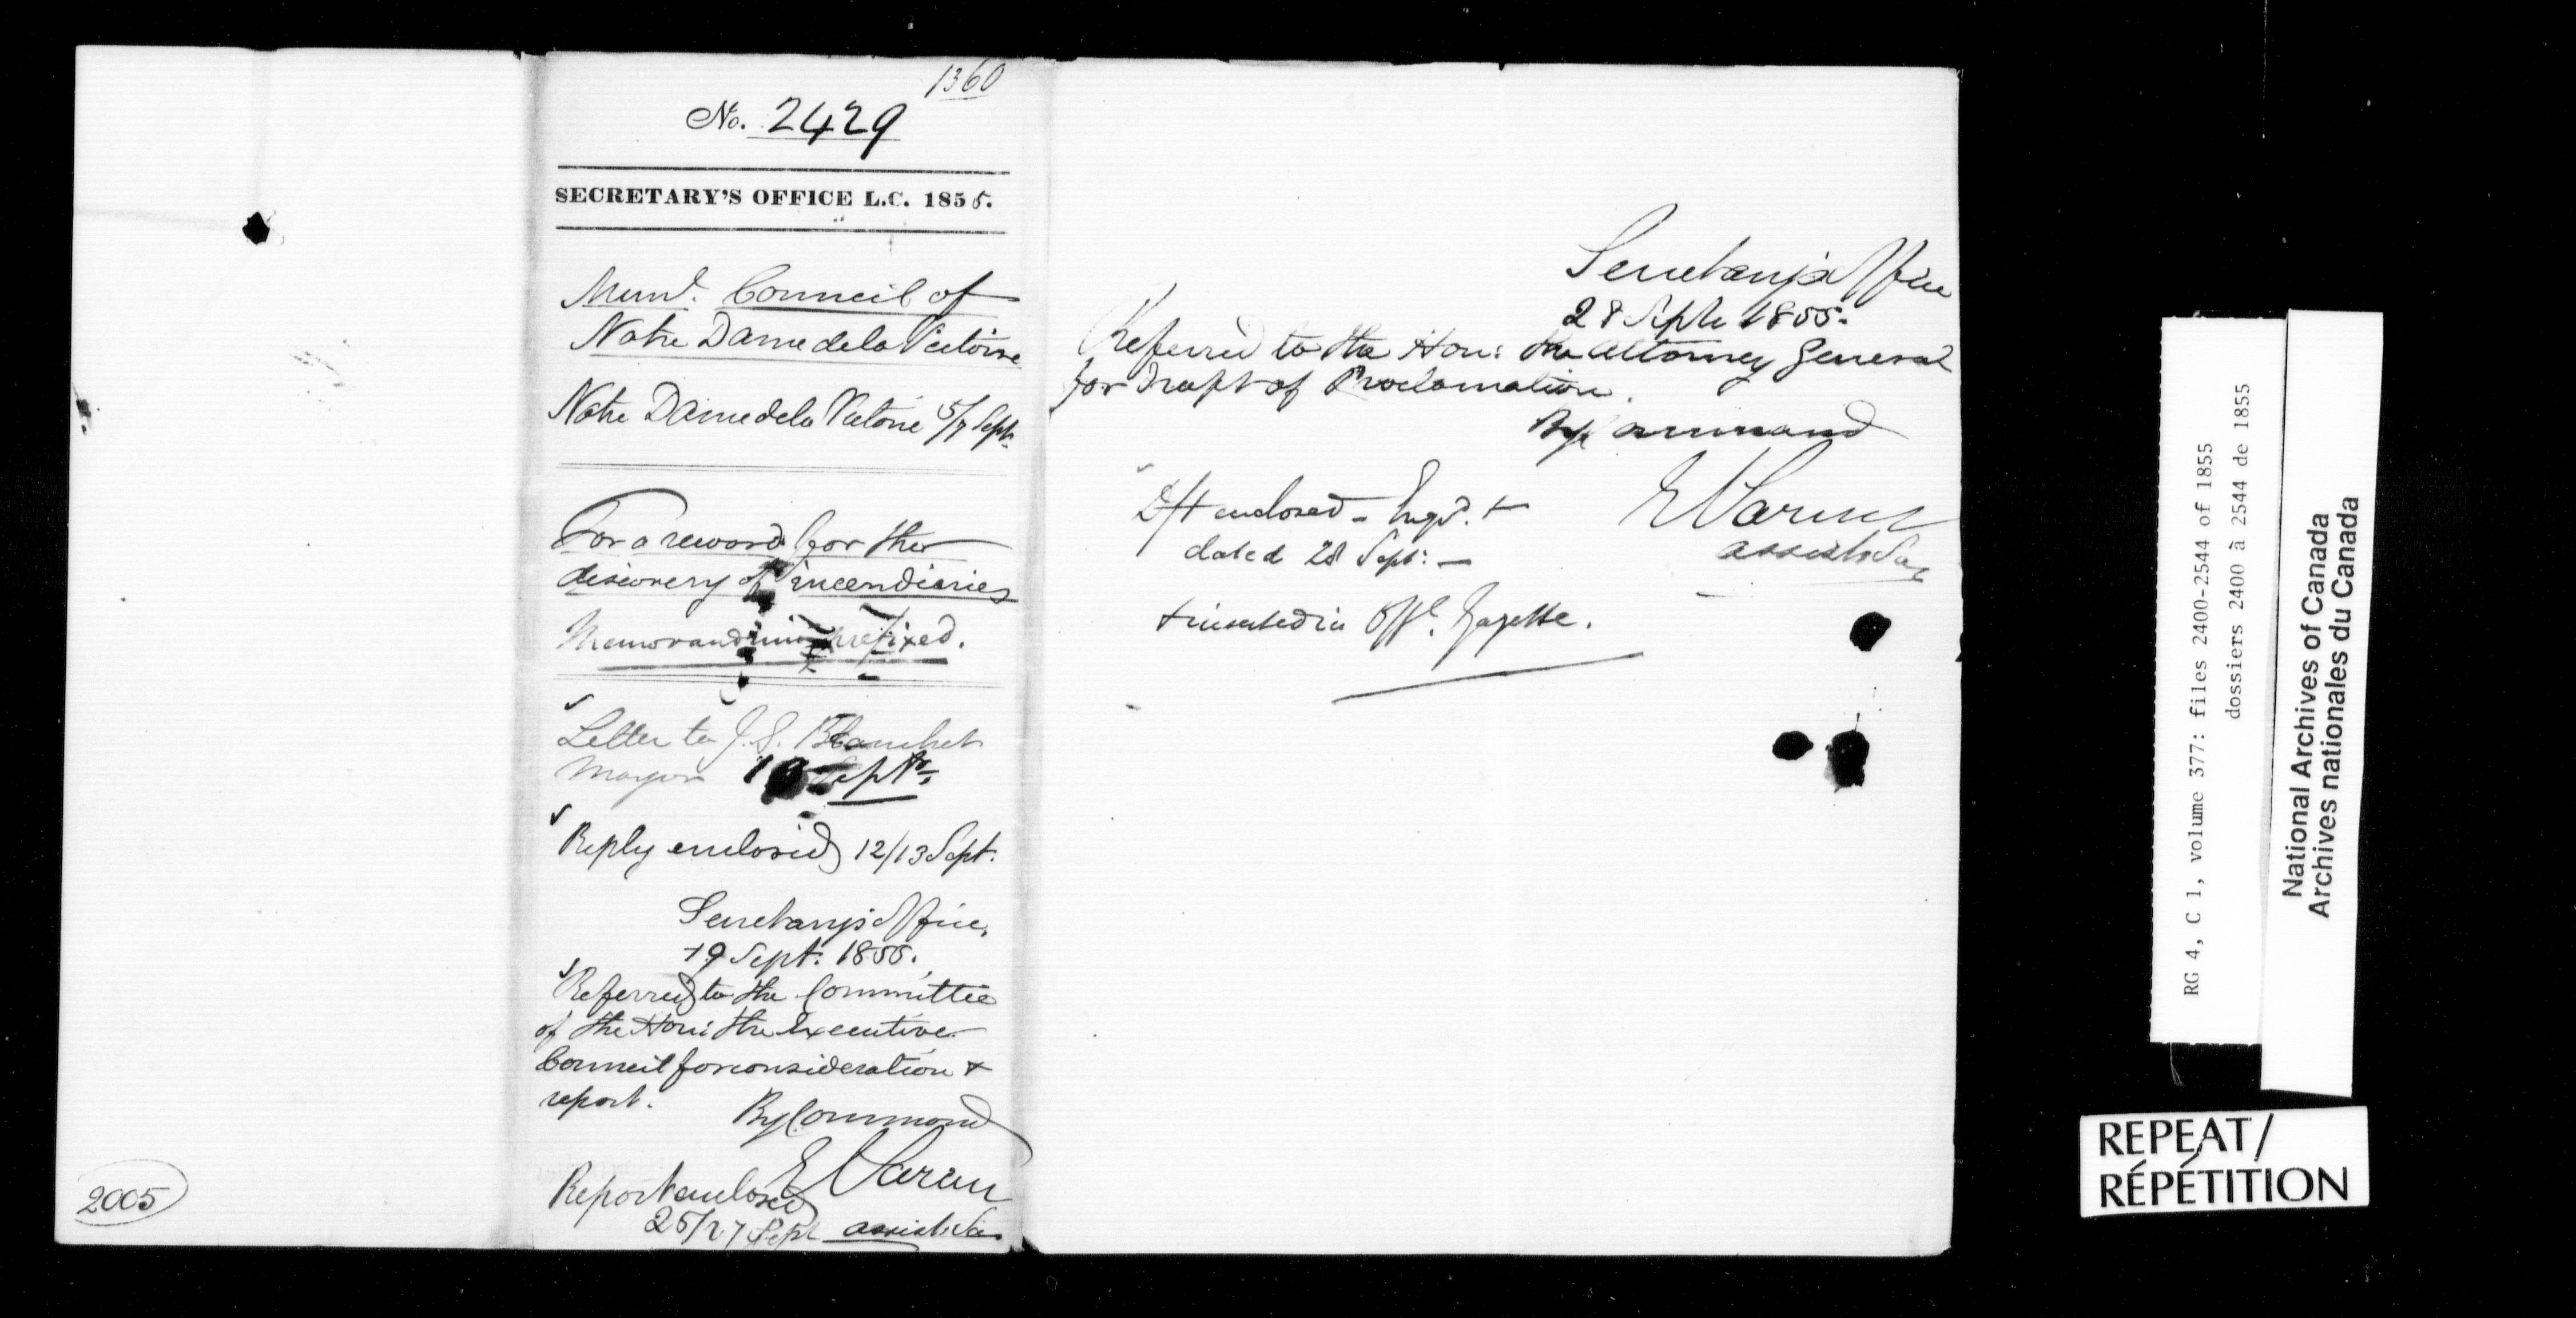 1360
No. 2429
SECRETARY'S OFFICE L.C. 1855.
Munl. Council of
Notre Dame de la Victoire
Notre Dame de la Victoire 5/7 Sept.
For a reward for the
discovery of incendiaries
Memorandum prefixed.
Letter to J. G. Blanchet
Mayor Sept.
Reply enclosed 12/13 Sept.
Secretary's Office,
19 Sept. 1855.
Referred to the Committee
of the Hon: the Executive
Council for consideration +
report.
By Command
Report enclosed
25/27 Sept Assist. Sec
2005
Secretary's Office
28 Septr 1855.
Referred to the Hon: the Attorney General
for draft of Proclamation.
By Command
Dft enclosed - Engd. +
dated 28 Sept: -
Assist. Sec
+ inserted in Offl. Gazette.
RG 4, C 1, volume 377: files 2400-2544 of 1855
dossiers 2400 à 2544 de 1855
National Archives of Canada
Archives nationales du Canada
REPEAT/
RÉPÉTITION